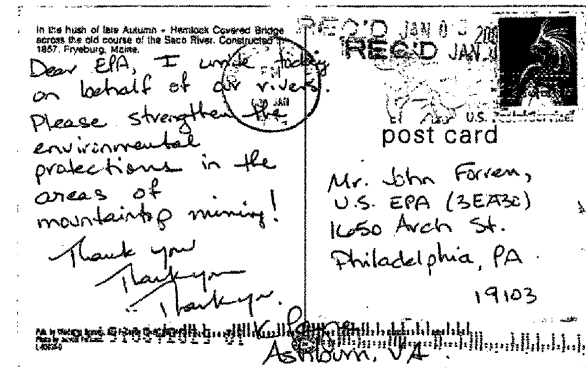 In the hush of late Autumn - Hemlock Covered Bridge
across the old course of the Saco River. Constructed in
1857. Fryeburg, Maine.
Dear EPA, I write today
on behalf of our rivers.
Please strengthen the
environmental
protections in the
areas of
mountaintop mining!
Thank you
Thank you
Thank you.
K. Payne
Ashburn, VA.
REC'D JAN 0
REC'D JAN
PM
JAN
U.S.
post card
Mr. John Forren,
U.S. EPA (3EA30)
1650 Arch St.
Philadelphia, PA.
19103